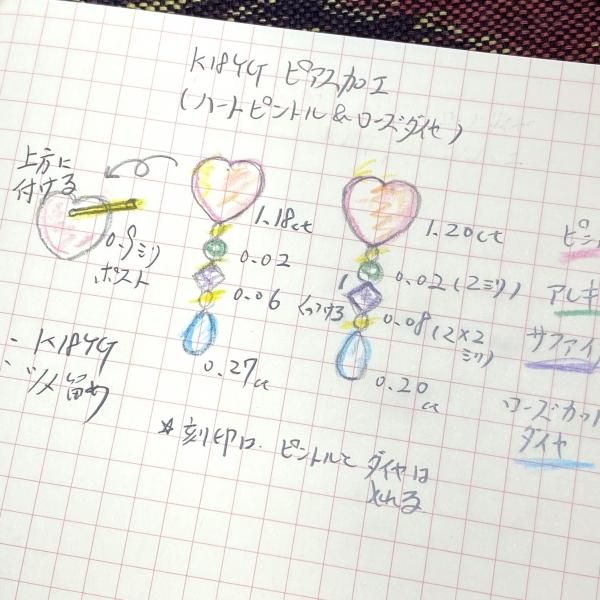 K18YG ピアス加工
(ハートピントル&ローズダイヤ)
上方に
付ける
0.9ミリ
ポスト
・K18YG
・ツメ留め
1.18ct
0.02
0.06
0.27ct
1.20ct
0.02(2ミリ)
くっつける
0.08(2×2
ミリ)
0.20
ct
ピン
アレキ
サファイ
ローズカッ
ダイヤ
*刻印は ピントルと ダイヤは
入れる